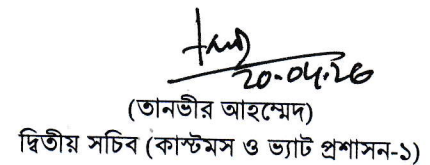 20-04-26
(তানভীর আহম্মেদ)
দ্বিতীয় সচিব (কাস্টমস ও ভ্যাট প্রশাসন-১)